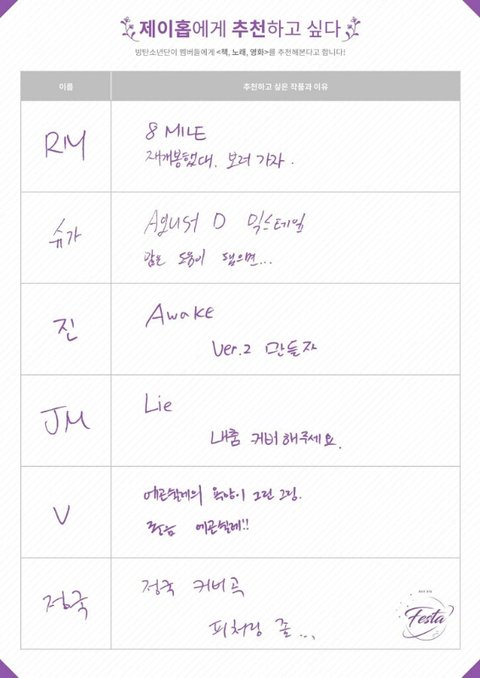 제이홉에게 추천하고 싶다
방탄소년단이 멤버들에게 <책, 노래, 영화>를 추천해본다고 합니다!
이름 추천하고 싶은 작품과 이유
RM
8 MILE
재개봉했대. 보러 가자.
슈가
Agust D 믹스테잎
많은 도움이 됐으면...
진
Awake
Ver.2 만들자
JM
Lie
내춤 커버해주세요.
V
에곤쉴레의 그린 그림.
에곤쉴레!!
정국
정국 커버곡
피처링 좀...
Festa